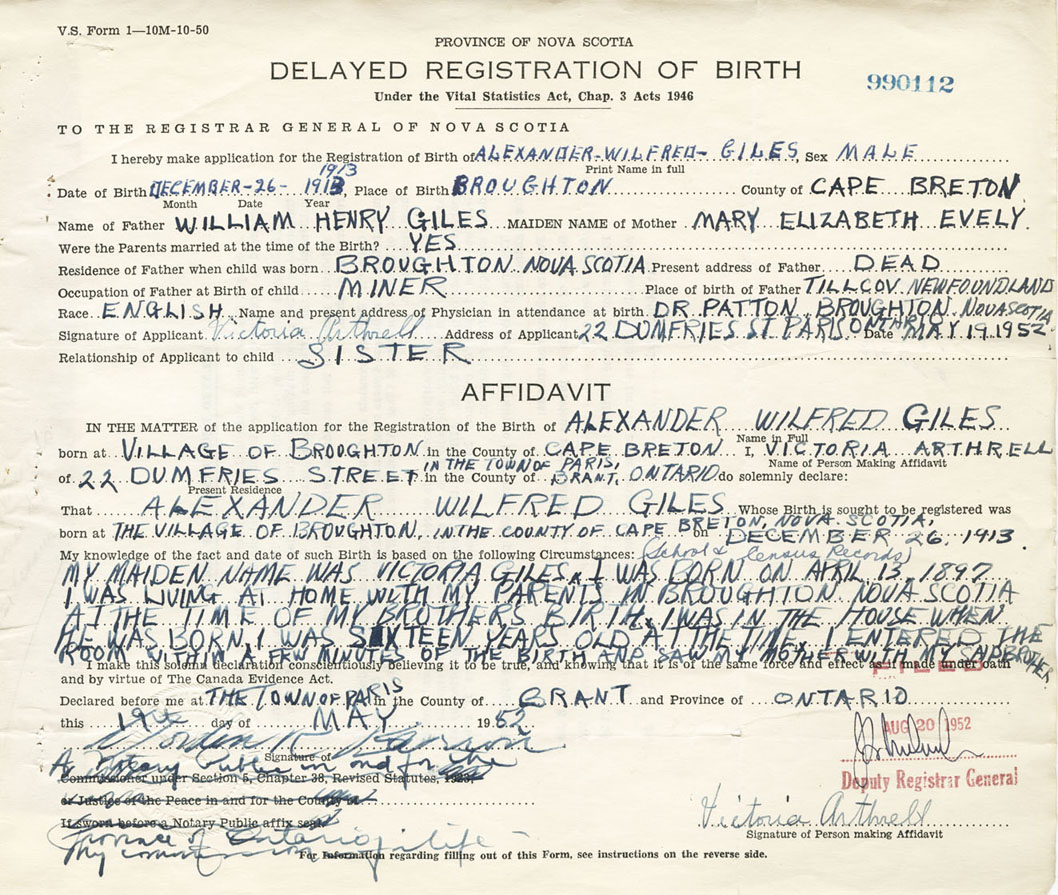 V.S. Form 1—10M-10-50
PROVINCE OF NOVA SCOTIA
DELAYED REGISTRATION OF BIRTH
990112
Under the Vital Statistics Act, Chap. 3 Acts 1946
TO THE REGISTRAR GENERAL OF NOVA SCOTIA
I hereby make application for the Registration of Birth of ALEXANDER-WILFRED- GILES Sex MALE
Print Name in full
1913
Date of Birth DECEMBER-26- 1913, Place of Birth BROUGHTON County of CAPE BRETON
Month Date Year
Name of Father WILLIAM HENRY GILES MAIDEN NAME of Mother MARY ELIZABETH EVELY.
Were the Parents married at the time of the Birth? YES
Residence of Father when child was born BROUGHTON NOVA SCOTIA Present address of Father DEAD
Occupation of Father at Birth of child MINER Place of birth of Father TILLCOV. NEWFOUNDLAND
Race ENGLISH Name and present address of Physician in attendance at birth DR. PATTON BROUGHTON NOVA SCOTIA
Signature of Applicant Victoria Arthrell Address of Applicant 22 DUMFRIES ST PARIS ONTARIO Date MAY 19. 1952
Relationship of Applicant to child SISTER
AFFIDAVIT
IN THE MATTER of the application for the Registration of the Birth of ALEXANDER WILFRED GILES
Name in Full
born at VILLAGE OF BROUGHTON in the County of CAPE BRETON I, VICTORIA ARTHRELL
Name of Person Making Affidavit
IN THE TOWN OF PARIS,
of 22 DUMFRIES STREET in the County of BRANT, ONTARIO do solemnly declare:
Present Residence
That ALEXANDER WILFRED GILES Whose Birth is sought to be registered was
born at THE VILLAGE OF BROUGHTON, IN THE COUNTY OF CAPE BRETON, NOVA SCOTIA, on DECEMBER 26, 1913.
My knowledge of the fact and date of such Birth is based on the following Circumstances: (School & Census Records)
MY MAIDEN NAME WAS VICTORIA GILES. I WAS BORN ON APRIL 13, 1897.
I WAS LIVING AT HOME WITH MY PARENTS IN BROUGHTON NOVA SCOTIA
AT THE TIME OF MY BROTHERS BIRTH. I WAS IN THE HOUSE WHEN
HE WAS BORN. I WAS SIXTEEN YEARS OLD AT THE TIME. I ENTERED THE
ROOM WITHIN A FEW MINUTES OF THE BIRTH AND SAW MY MOTHER WITH MY SAID BROTHER.
I make this solemn declaration conscientiously believing it to be true, and knowing that it is of the same force and effect as if made under oath
and by virtue of The Canada Evidence Act.
FILED
Declared before me at THE TOWN OF PARIS in the County of BRANT and Province of ONTARIO
this 19th day of MAY 1952
AUG 20 1952
Signature of
A Notary Public in and for the
Commissioner under Section 5, Chapter 38, Revised Statutes, 1923,
Deputy Registrar General
or Justice of the Peace in and for the County of
If sworn before a Notary Public affix seal
Victoria Arthrell
Province of Ontario
Signature of Person making Affidavit
My commission is life
For Information regarding filling out of this Form, see instructions on the reverse side.